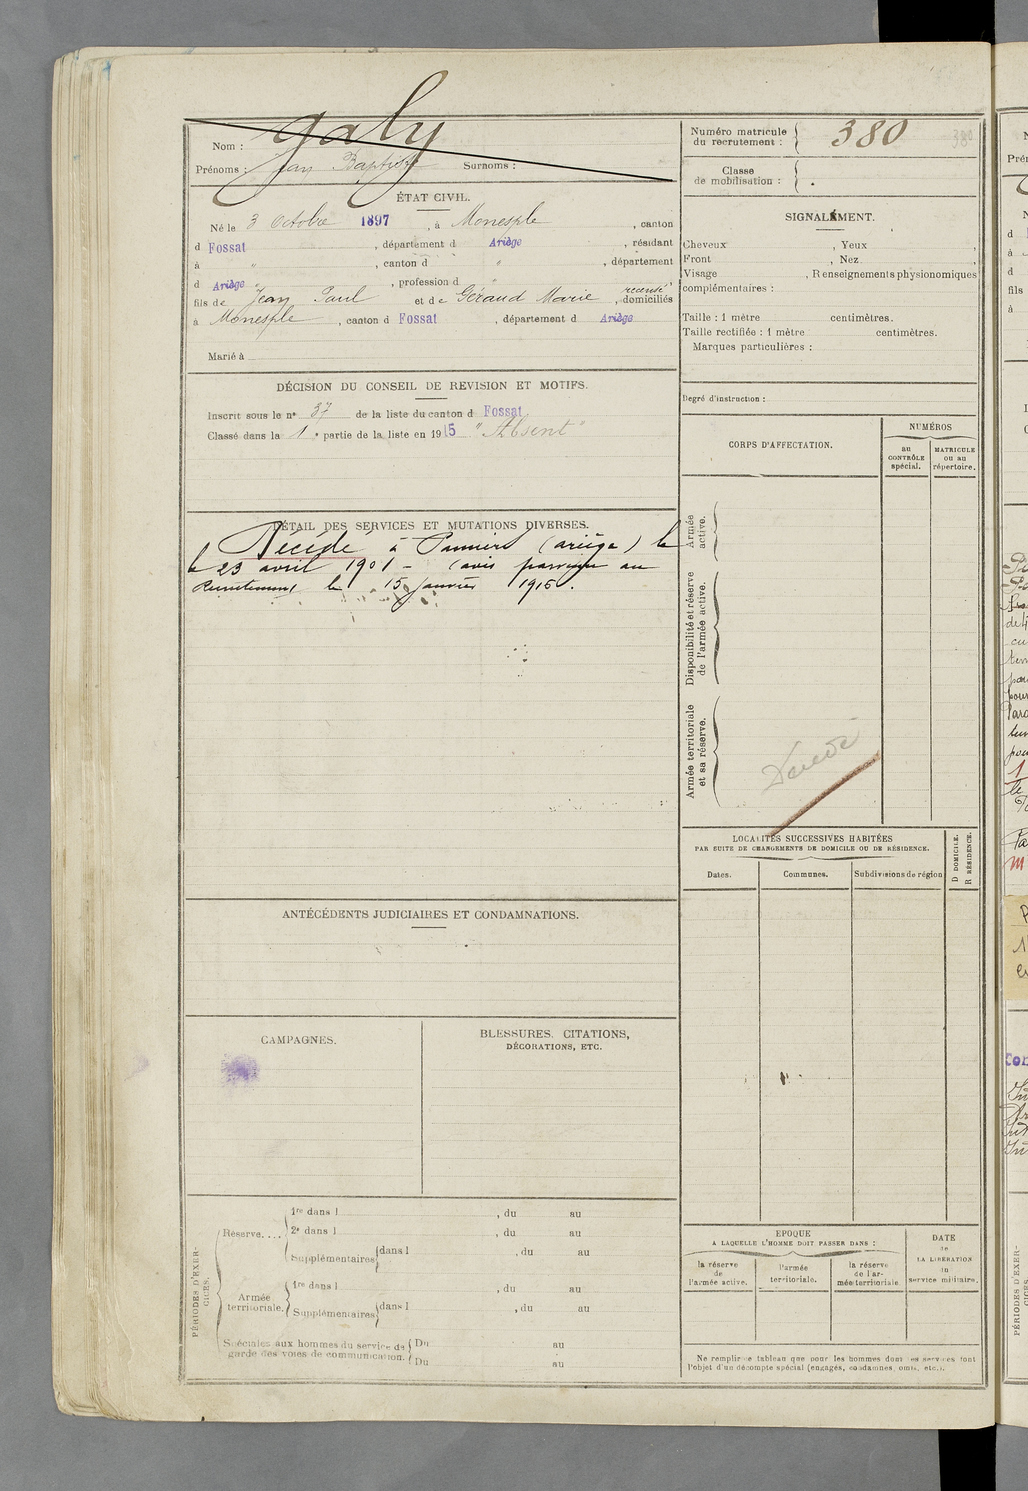 Nom : Galy
Prénoms : Jean Baptiste Surnoms :
Numéro matricule
du recrutement : 380
380
Classe
de mobilisation :
ÉTAT CIVIL.
Né le 3 Octobre 1897, à Monesple, canton
d Fossat, département d Ariège, résidant
à ", canton d ", département
d Ariège ", profession d "
fils de Jean Paul et de Géraud Marie, recensé domiciliés
à Monesple, canton d Fossat, département d Ariège
Marié à
SIGNALEMENT.
Cheveux , Yeux ,
Front , Nez ,
Visage , Renseignements physionomiques
complémentaires :
Taille : 1 mètre centimètres.
Taille rectifiée : 1 mètre centimètres.
Marques particulières :
Degré d'instruction :
DÉCISION DU CONSEIL DE REVISION ET MOTIFS.
Inscrit sous le n° 37 de la liste du canton d Fossat.
Classé dans la 1e partie de la liste en 1915 "Absent"
DÉTAIL DES SERVICES ET MUTATIONS DIVERSES.
Décédé à Pamiers (Ariège) le
le 23 avril 1901 - (avis parvenu au
Recrutement le 15 janvier 1916).
CORPS D'AFFECTATION.
NUMÉROS
au
CONTRÔLE
spécial.
MATRICULE
ou au
répertoire.
Armée
active.
Disponibilité et réserve
de l'armée active.
Armée territoriale
et sa réserve.
Décédé
LOCALITÉS SUCCESSIVES HABITÉES
PAR SUITE DE CHANGEMENTS DE DOMICILE OU DE RÉSIDENCE.
Dates.
Communes.
Subdivisions de région
D DOMICILE.
R RÉSIDENCE.
ANTÉCÉDENTS JUDICIAIRES ET CONDAMNATIONS.
CAMPAGNES.
BLESSURES, CITATIONS,
DÉCORATIONS, ETC.
PÉRIODES D'EXER-
CICES.
Réserve....
1re dans l , du au
2e dans l , du au
Supplémentaires dans l , du au
Armée
territoriale.
1re dans l , du au
Supplémentaires dans l , du au
Spéciales aux hommes du service de
garde des voies de communication.
Du au
Du au
EPOQUE
A LAQUELLE L'HOMME DOIT PASSER DANS :
la réserve
de
l'armée active.
l'armée
territoriale.
la réserve
de l'ar-
mée territoriale.
DATE
de
LA LIBÉRATION
du
service militaire.
Ne remplir ce tableau que pour les hommes dont les services font
l'objet d'un décompte spécial (engagés, condamnés, omis, etc.).